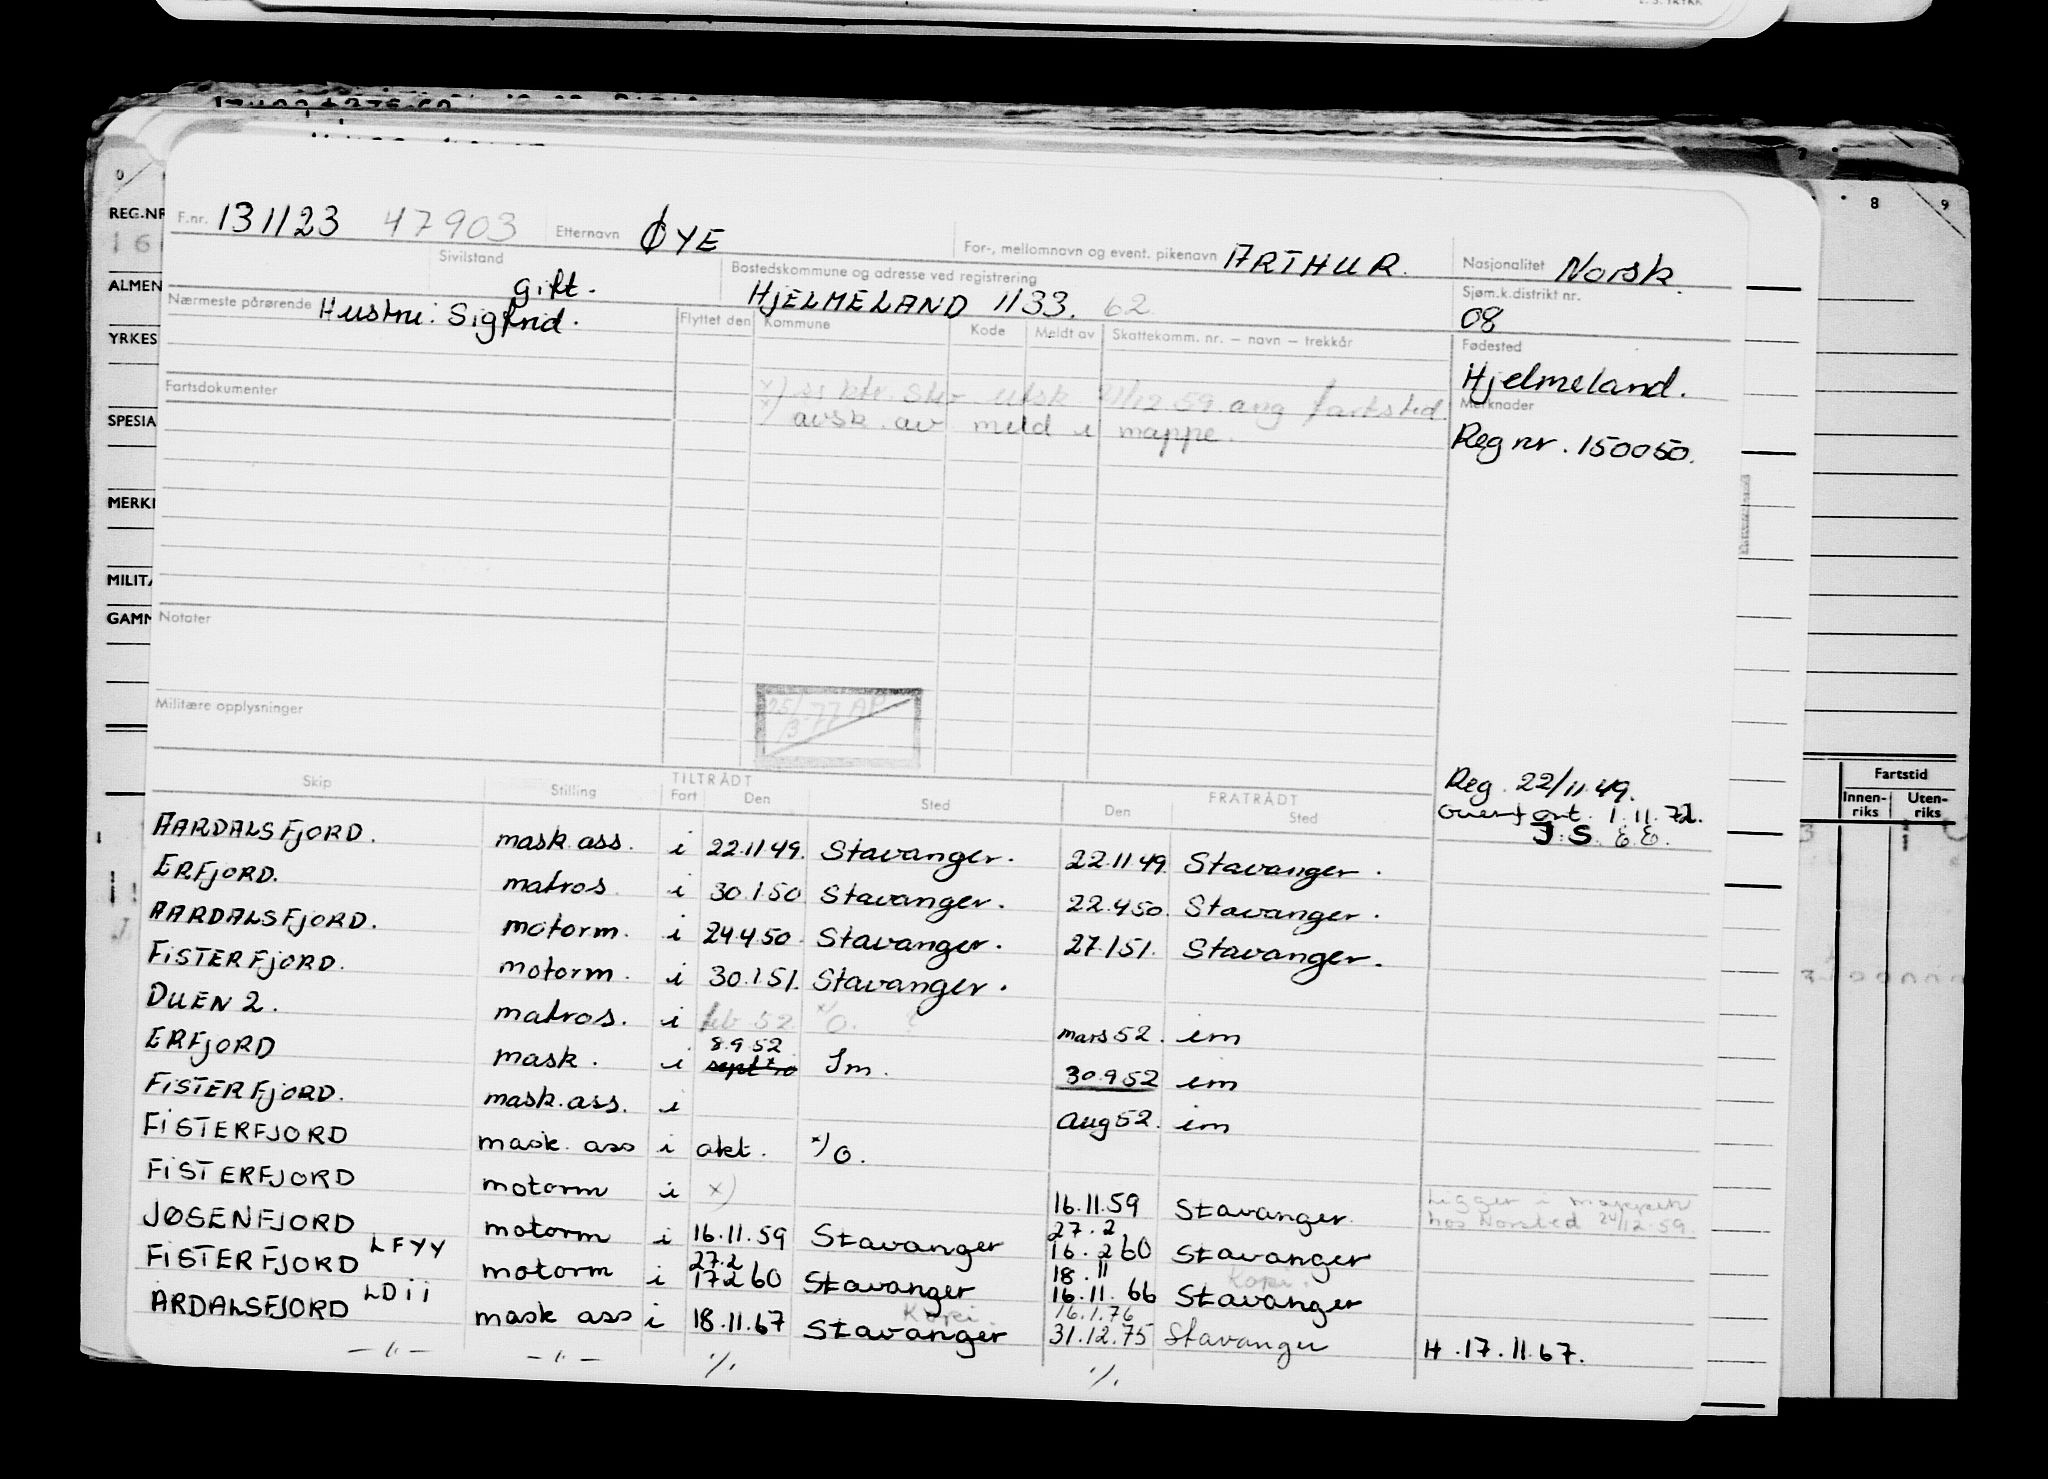 REG.NR
ALMEN
YRKES
SPESIA
MERKI
MILITÆ
GAMM
8 9
Fartstid
Innen-riks Uten-riks
F.nr. 131123 47903 Etternavn ØYE For-, mellomnavn og event. pikenavn ARTHUR. Nasjonalitet Norsk.
Sivilstand gift. Bostedskommune og adresse ved registrering HJELMELAND 1133. 62 Sjøm.k.distrikt nr. 08
Nærmeste pårørende Hustru: Sigfrid. Flyttet den Kommune Kode Meldt av Skattekomm. nr. – navn – trekkår Fødested
Hjelmeland.
Fartsdokumenter x) utsk 21/12 59 ang fartsted. Merknader
x) avsk. av meld i mappe. Reg nr. 150050.
Notater
Militære opplysninger
Reg. 22/11.49.
Overf ont. 1.11.72.
J.S. E.E.
Skip Stilling TILTRÅDT Fart Den Sted FRATRÅDT Den Sted
AARDALSFJORD. mask ass. i 22.11 49. Stavanger. 22.11 49. Stavanger.
ERFJORD. matros. i 30.1.50 Stavanger. 22.4 50. Stavanger.
AARDALSFJORD. motorm. i 24.4 50. Stavanger. 27.1 51. Stavanger.
FISTERFJORD. motorm. i 30.1 51. Stavanger.
DUEN 2. matros. i feb 52 x/o. mars 52. im
ERFJORD mask. i 8.9 52 Im. 30.9 52 im
FISTERFJORD. mask. ass. i aug 52. im
FISTERFJORD mask. ass i okt. x/o.
FISTERFJORD motorm i x) 16.11.59 Stavanger. Ligger i mappen hos Norsted 24/12-59.
JØSENFJORD motorm i 16.11.59 Stavanger 27.2 16.2 60 Stavanger
FISTERFJORD LFYY motorm i 27.2 17.2 60 Stavanger 18.11 16.11.66 Stavanger Kopi.
ARDALSFJORD LDii mask ass i 18.11.67 Stavanger Kopi. 16.1.76 31.12.75 Stavanger H.17.11.67.
—"— —"— ./. ./.